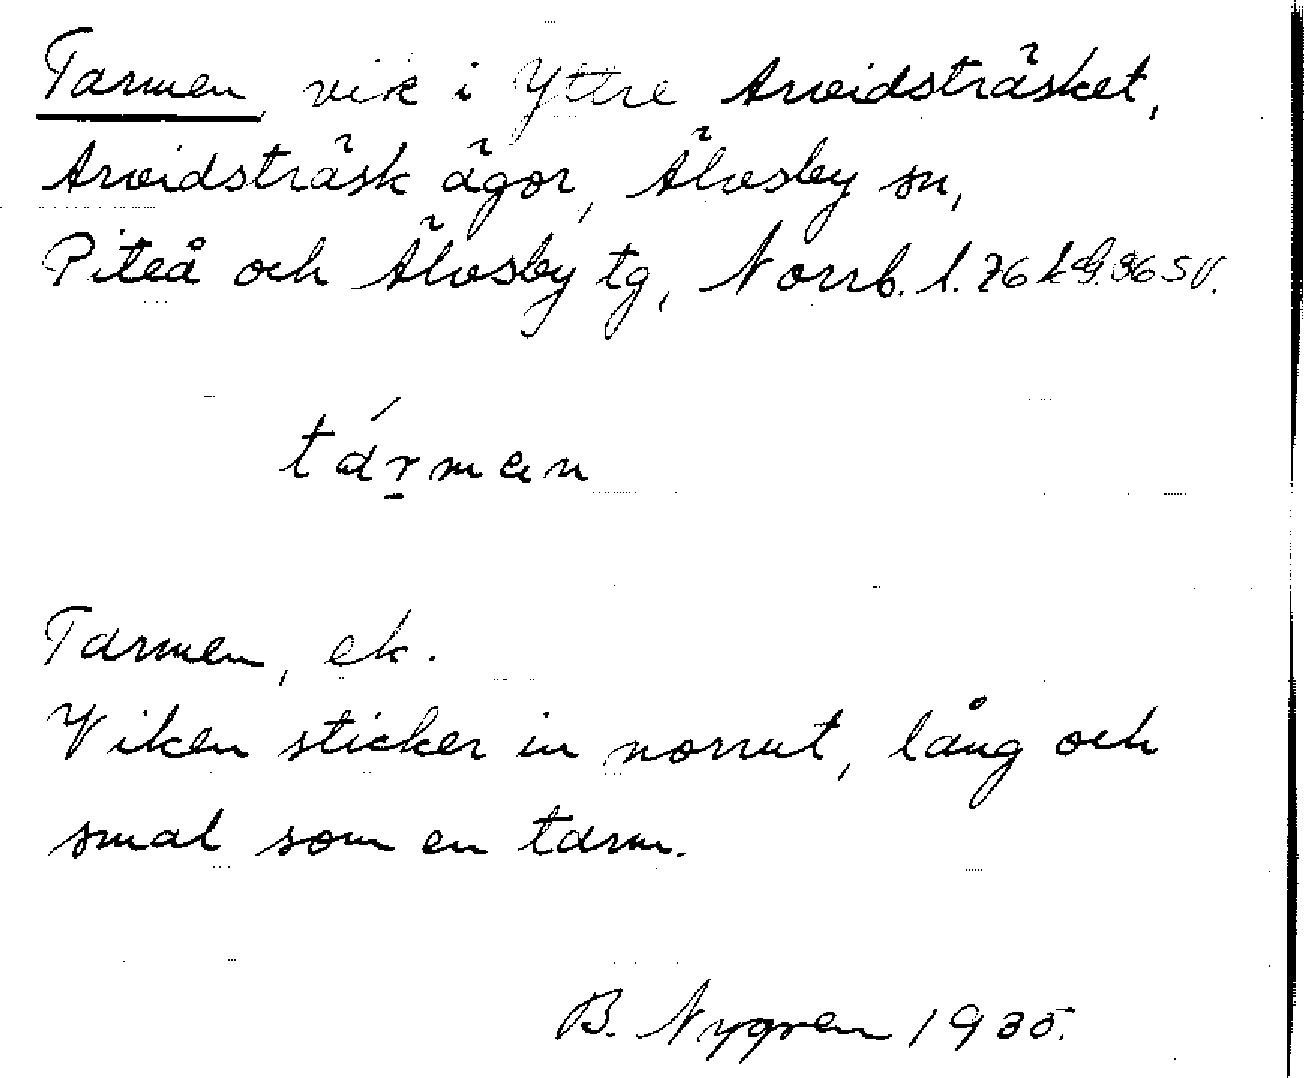 Tarmen, vik i Yttre Arvidsträsket,
Arvidsträsk ägor, Älvsby sn,
Piteå och Älvsby tg, Norrb. l. 76 kg. 36 SV.
tárman
Tarmen, ek.
Viken sticker in norrut, lång och
smal som en tarm.
B. Nygren 1935.